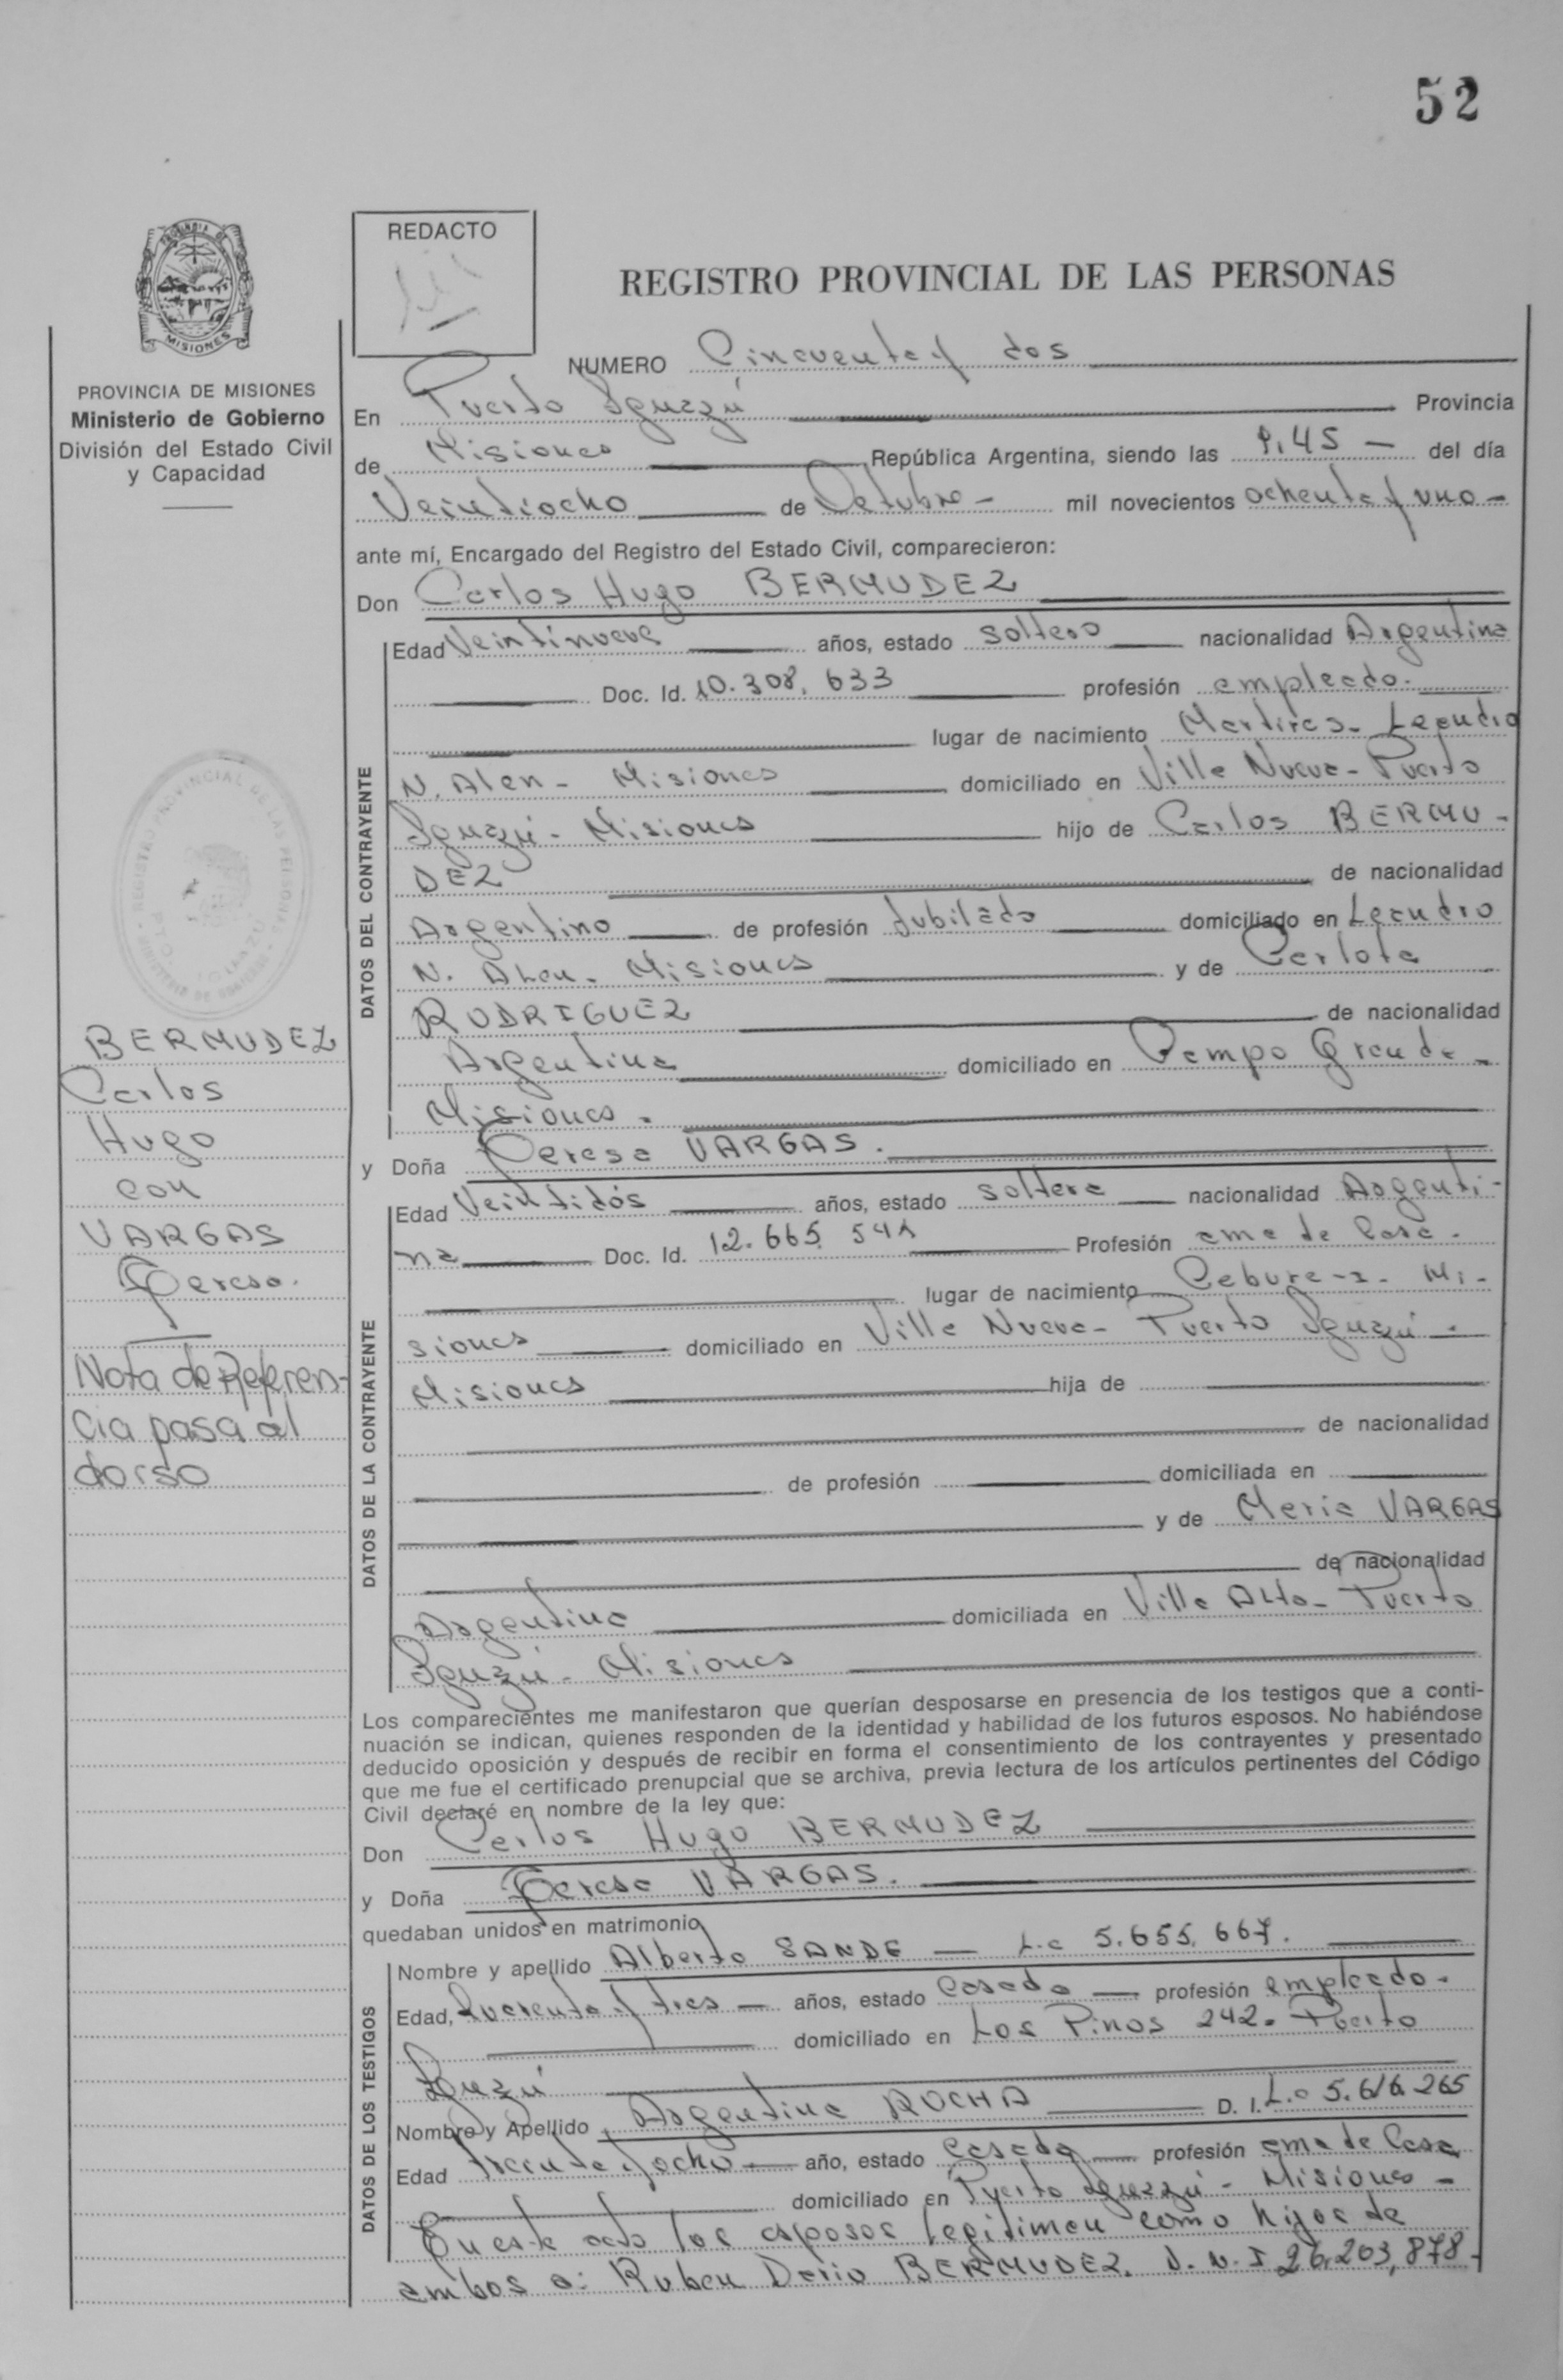 52
REDACTO
REGISTRO PROVINCIAL DE LAS PERSONAS
MISIONES
PROVINCIA DE MISIONES
Ministerio de Gobierno
División del Estado Civil
y Capacidad
NUMERO Cincuenta y dos
En Puerto Iguazú Provincia
de Misiones República Argentina, siendo las 9,45 — del día
Veintiocho de Octubre - mil novecientos ochenta y uno -
ante mí, Encargado del Registro del Estado Civil, comparecieron:
Don Carlos Hugo BERMUDEZ
DATOS DEL CONTRAYENTE
Edad Veintinueve años, estado soltero nacionalidad Argentina
Doc. Id. 10.308.633 profesión empleado.
lugar de nacimiento Martires - Leandro
N. Alen - Misiones domiciliado en Villa Nueva - Puerto
Iguazú - Misiones hijo de Carlos BERMU -
DEZ de nacionalidad
Argentino de profesión Jubilado domiciliado en Leandro
N. ALen - Misiones y de Carlota
RODRIGUEZ de nacionalidad
Argentina domiciliado en Campo Grande -
Misiones.
y Doña Teresa VARGAS.
DATOS DE LA CONTRAYENTE
Edad Veintidós años, estado soltera nacionalidad Argenti-
na Doc. Id. 12.665.541 Profesión ama de Casa.
lugar de nacimiento Mi-
siones domiciliado en Villa Nueva - Puerto Iguazú -
Misiones hija de
de nacionalidad
de profesión domiciliada en
y de Maria VARGAS
de nacionalidad
Argentina domiciliada en Villa Alta - Puerto
Iguazú - Misiones
Los comparecientes me manifestaron que querían desposarse en presencia de los testigos que a conti-
nuación se indican, quienes responden de la identidad y habilidad de los futuros esposos. No habiéndose
deducido oposición y después de recibir en forma el consentimiento de los contrayentes y presentado
que me fue el certificado prenupcial que se archiva, previa lectura de los artículos pertinentes del Código
Civil declaré en nombre de la ley que:
Don Carlos Hugo BERMUDEZ
y Doña Teresa VARGAS.
quedaban unidos en matrimonio
DATOS DE LOS TESTIGOS
Nombre y apellido Alberto SANDE — L.e 5.655.667.
Edad, Cuarenta y tres — años, estado Casado — profesión empleado.
domiciliado en Los Pinos 242 - Puerto
Iguazú
Nombre y Apellido Argentina ROCHA D. I. L.c 5.616.265
Edad treinta y ocho — año, estado Casada — profesión ama de Casa
domiciliado en Puerto Iguazú - Misiones -
En este acto los esposos legitiman como hijos de
ambos a: Ruben Dario BERMUDEZ. D.N.I 26.203.878 -
BERMUDEZ
Carlos
Hugo
con
VARGAS
Teresa.
Nota de Referen-
cia pasa al
dorso